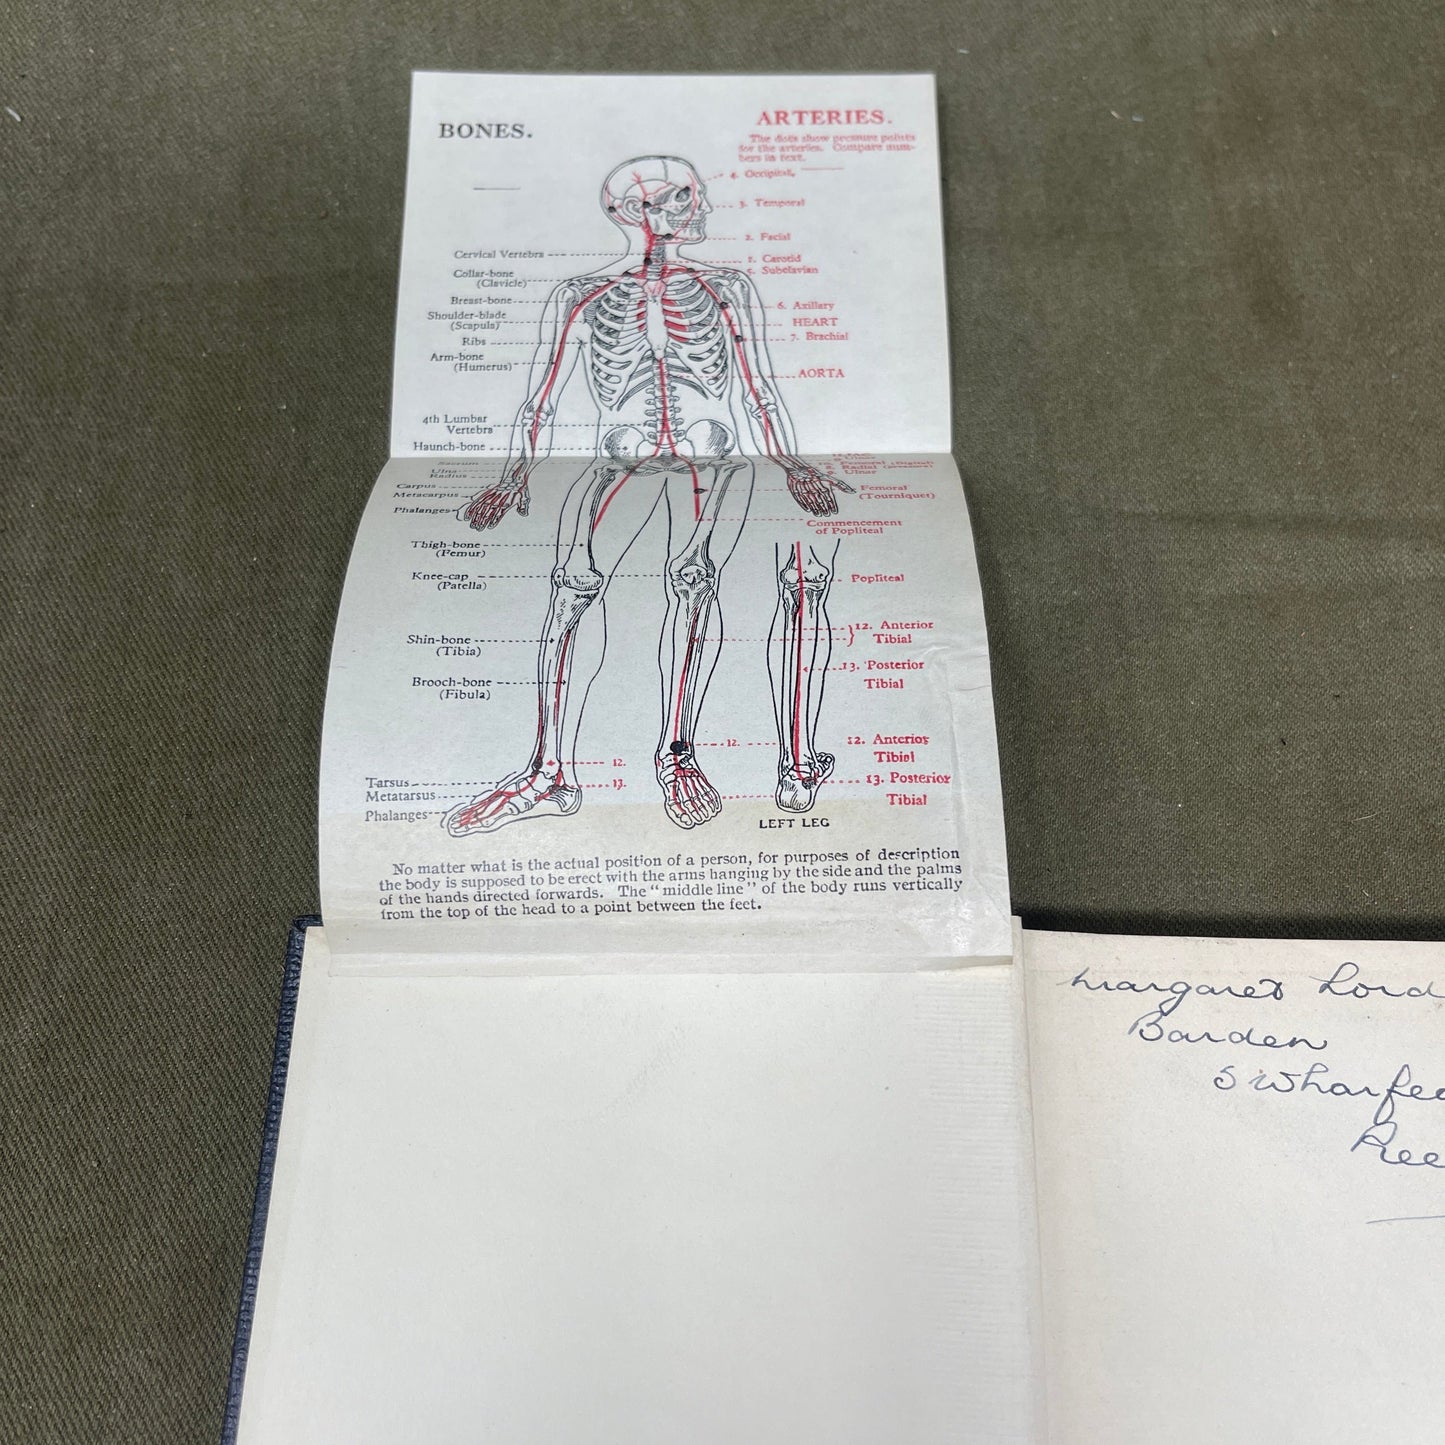 BONES.
ARTERIES.
The dots show pressure points
for the arteries. Compare num-
bers in text.
4. Occipital,
3. Temporal
2. Facial
Cervical Vertebra
1. Carotid
Collar-bone
(Clavicle)
5. Subclavian
Breast-bone
6. Axillary
Shoulder-blade
(Scapula)
HEART
Ribs
7. Brachial
Arm-bone
(Humerus)
AORTA
4th Lumbar
Vertebra
Haunch-bone
Sacrum
Ulna
Radius
8. Radial
9. Ulnar
Carpus
Metacarpus
Phalanges
Femoral
(Tourniquet)
Commencement
of Popliteal
Thigh-bone
(Femur)
Knee-cap
(Patella)
Popliteal
Shin-bone
(Tibia)
12. Anterior
Tibial
13. Posterior
Tibial
Brooch-bone
(Fibula)
12.
12. Anterior
Tibial
12.
13.
13. Posterior
Tibial
Tarsus
Metatarsus
Phalanges
LEFT LEG
No matter what is the actual position of a person, for purposes of description
the body is supposed to be erect with the arms hanging by the side and the palms
of the hands directed forwards. The "middle line" of the body runs vertically
from the top of the head to a point between the feet.
Margaret Lord
Barden
5 Wharfe